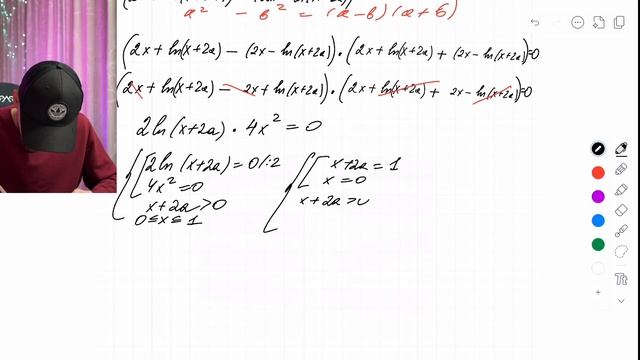 a² - в² = (а-в)(а+б)
(2x + ln(x+2a) - (2x - ln(x+2a)) · (2x + ln(x+2a) + (2x - ln(x+2a)) = 0
(2x + ln(x+2a) - 2x + ln(x+2a)) · (2x + ln(x+2a) + 2x - ln(x+2a)) = 0
2ln(x+2a) · 4x² = 0
2ln(x+2a) = 0 /:2
4x² = 0
x+2a > 0
0 ≤ x ≤ 1
x+2a = 1
x = 0
x+2a > 0
Tt